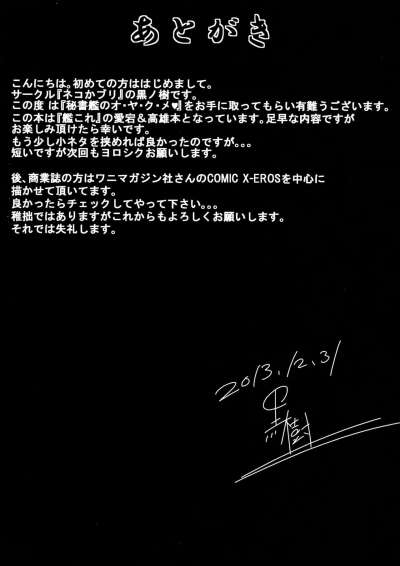 あとがき
こんにちは。初めての方ははじめまして。
サークル『ネコかブリ』の黒ノ樹です。
この度 は『秘書艦のオ・ヤ・ク・メ♥』をお手に取ってもらい有難うございます。
この本は『艦これ』の愛宕＆高雄本となっています。足早な内容ですが
お楽しみ頂けたら幸いです。
もう少し小ネタを挟めれば良かったのですが｡｡｡
短いですが次回もヨロシクお願いします。
後、商業誌の方はワニマガジン社さんのCOMIC X-EROSを中心に
描かせて頂いてます。
良かったらチェックしてやって下さい｡｡｡
稚拙ではありますがこれからもよろしくお願いします。
それでは失礼します。
2013.12.31
黒ノ樹